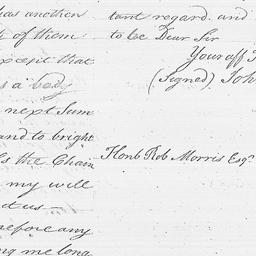 has another
of them
except that
s a body
next Sum
and to bright
s the Chain
my will
t us —
before any
ng me long
tant regard. and
to be Dear Sir
Your aff
(Signed) Joh
Honb Rob Morris Esqr.